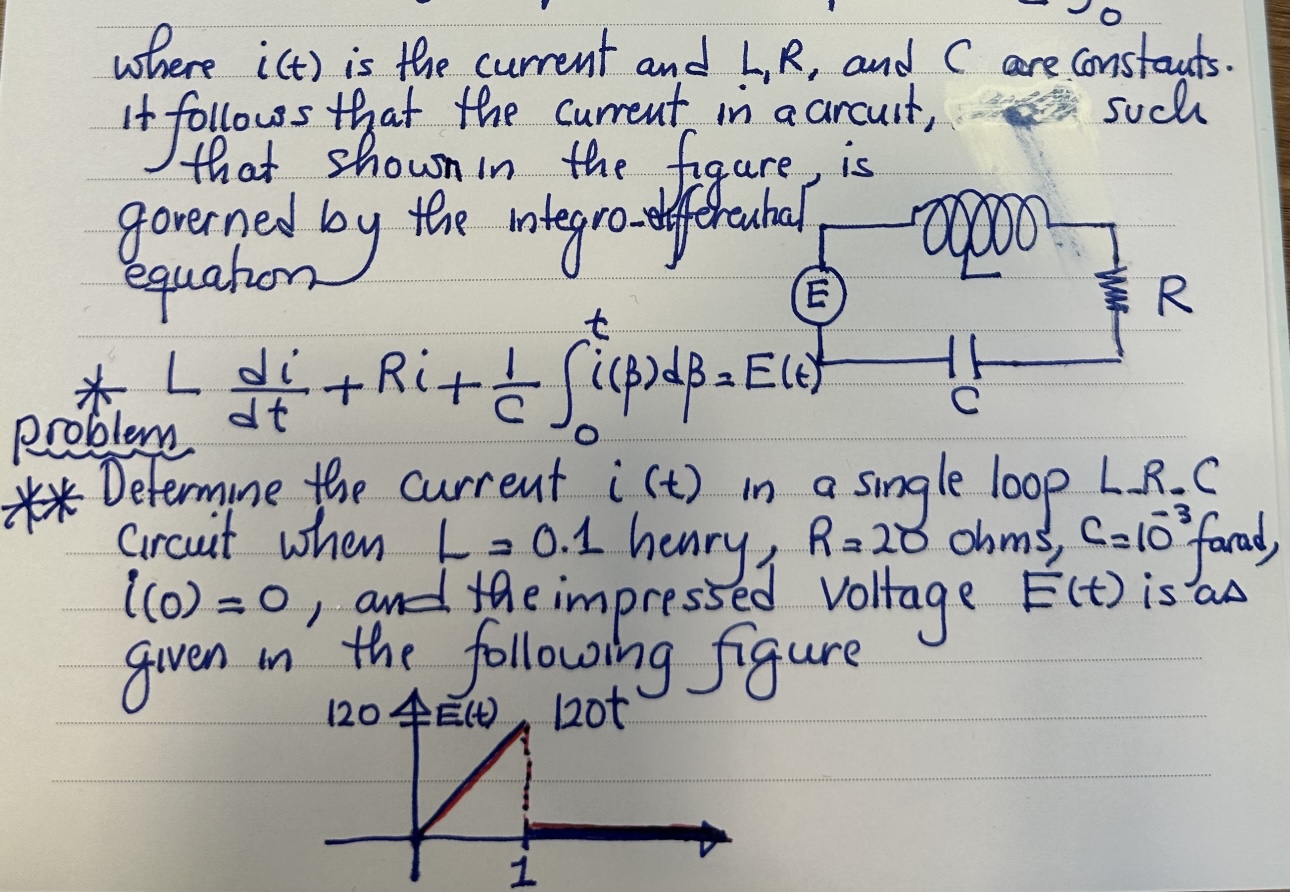 where i(t) is the current and L,R, and C are constants.
It follows that the current in a circuit, such
that shown in the figure, is
governed by the integro-differential
equation
E
L
R
C
* L di/dt + Ri + 1/C ∫₀ᵗ i(β)dβ = E(t)
problem
** Determine the current i(t) in a single loop L-R-C
circuit when L = 0.1 henry, R = 20 ohms, C = 10⁻³ farad,
i(0) = 0, and the impressed voltage E(t) is as
given in the following figure
120 E(t) 120t
1